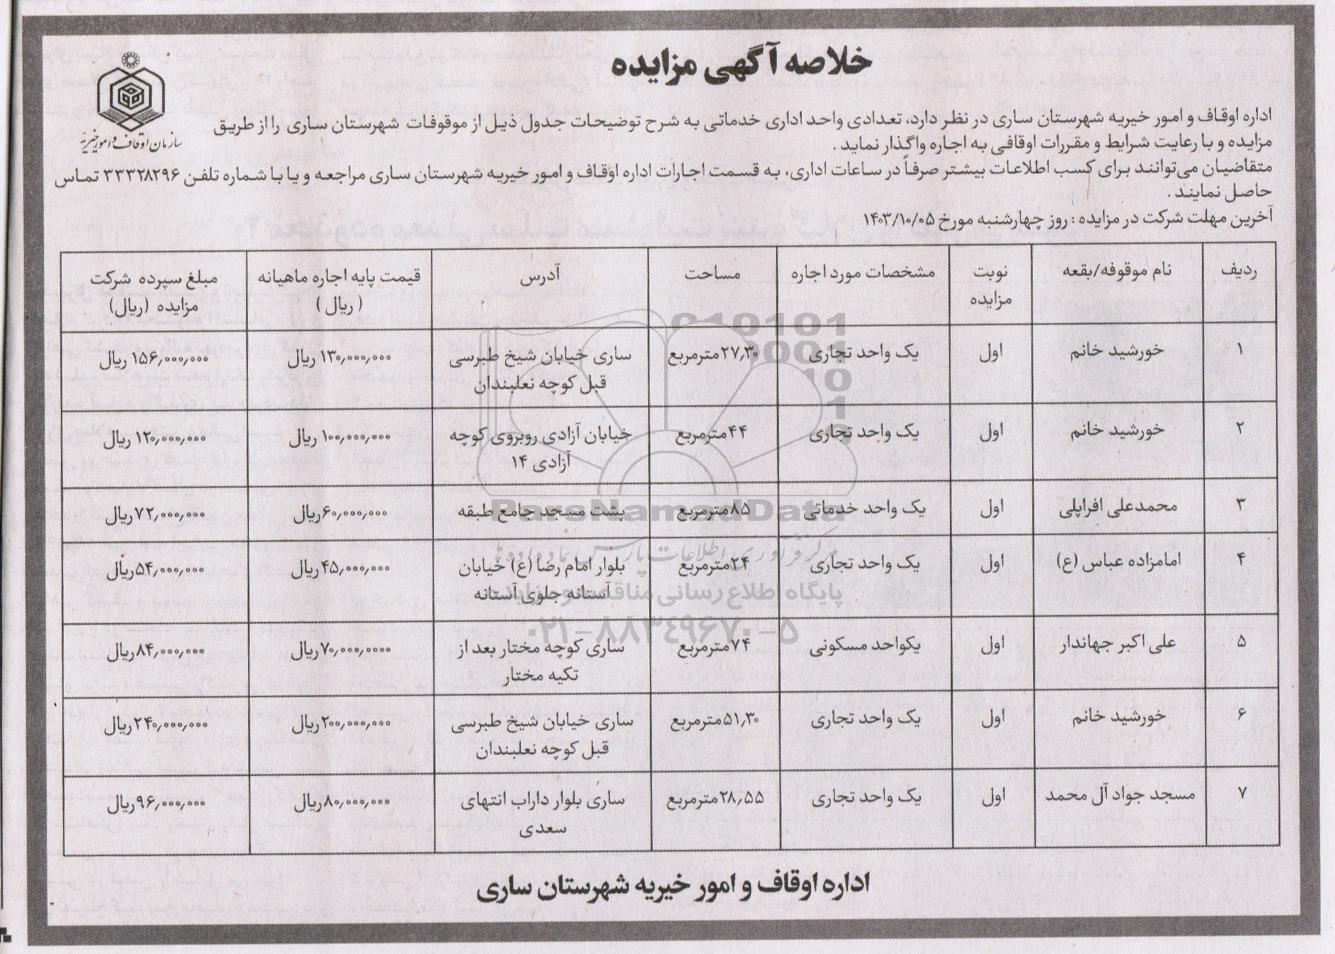 خلاصه آگهی مزایده
سازمان اوقاف و امور خیریه
اداره اوقاف و امور خیریه شهرستان ساری در نظر دارد، تعدادی واحد اداری خدماتی به شرح توضیحات جدول ذیل از موقوفات شهرستان ساری را از طریق
مزایده و با رعایت شرایط و مقررات اوقافی به اجاره واگذار نماید .
متقاضیان می‌توانند برای کسب اطلاعات بیشتر صرفاً در ساعات اداری، به قسمت اجارات اداره اوقاف و امور خیریه شهرستان ساری مراجعه و یا با شماره تلفن ۳۳۳۳۸۲۹۶ تماس
حاصل نمایند .
آخرین مهلت شرکت در مزایده : روز چهارشنبه مورخ ۱۴۰۳/۱۰/۰۵
ردیف نام موقوفه/بقعه نوبت مزایده مشخصات مورد اجاره مساحت آدرس قیمت پایه اجاره ماهیانه (ریال) مبلغ سپرده شرکت مزایده (ریال)
۱ خورشید خانم اول یک واحد تجاری ۲۷٫۳۰مترمربع ساری خیابان شیخ طبرسی قبل کوچه نعلبندان ۱۳۰٫۰۰۰٫۰۰۰ ریال ۱۵۶٫۰۰۰٫۰۰۰ ریال
۲ خورشید خانم اول یک واحد تجاری ۴۴مترمربع خیابان آزادی روبروی کوچه آزادی ۱۴ ۱۰۰٫۰۰۰٫۰۰۰ ریال ۱۲۰٫۰۰۰٫۰۰۰ ریال
۳ محمدعلی افراپلی اول یک واحد خدماتی ۸۵مترمربع پشت مسجد جامع طبقه ۶۰٫۰۰۰٫۰۰۰ریال ۷۲٫۰۰۰٫۰۰۰ریال
۴ امامزاده عباس (ع) اول یک واحد تجاری ۲۴مترمربع بلوار امام رضا (ع) خیابان آستانه جلوی آستانه ۴۵٫۰۰۰٫۰۰۰ریال ۵۴٫۰۰۰٫۰۰۰ریال
۵ علی اکبر جهاندار اول یکواحد مسکونی ۷۴مترمربع ساری کوچه مختار بعد از تکیه مختار ۷۰٫۰۰۰٫۰۰۰۰ریال ۸۴٫۰۰۰٫۰۰۰ریال
۶ خورشید خانم اول یک واحد تجاری ۵۱٫۳۰مترمربع ساری خیابان شیخ طبرسی قبل کوچه نعلبندان ۲۰۰٫۰۰۰٫۰۰۰ریال ۲۴۰٫۰۰۰٫۰۰۰ریال
۷ مسجد جواد آل محمد اول یک واحد تجاری ۲۸٫۵۵مترمربع ساری بلوار داراب انتهای سعدی ۸۰٫۰۰۰٫۰۰۰ریال ۹۶٫۰۰۰٫۰۰۰ریال
ParsNamadData
پایگاه اطلاع رسانی مناقصه و مزایده
۰۲۱-۸۸۳۴۹۶۷۰-۵
اداره اوقاف و امور خیریه شهرستان ساری